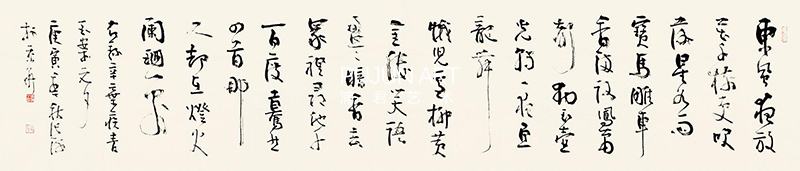 東風夜放
花千樹更吹
落星如雨
寶馬雕車
香滿路鳳簫
聲動玉壺
光轉一夜魚
龍舞
蛾兒雪柳黃
金縷笑語
盈盈暗香去
眾裡尋他千
百度驀然
回首那
人卻在燈火
闌珊處
右錄辛棄疾青
玉案元夕
庚寅